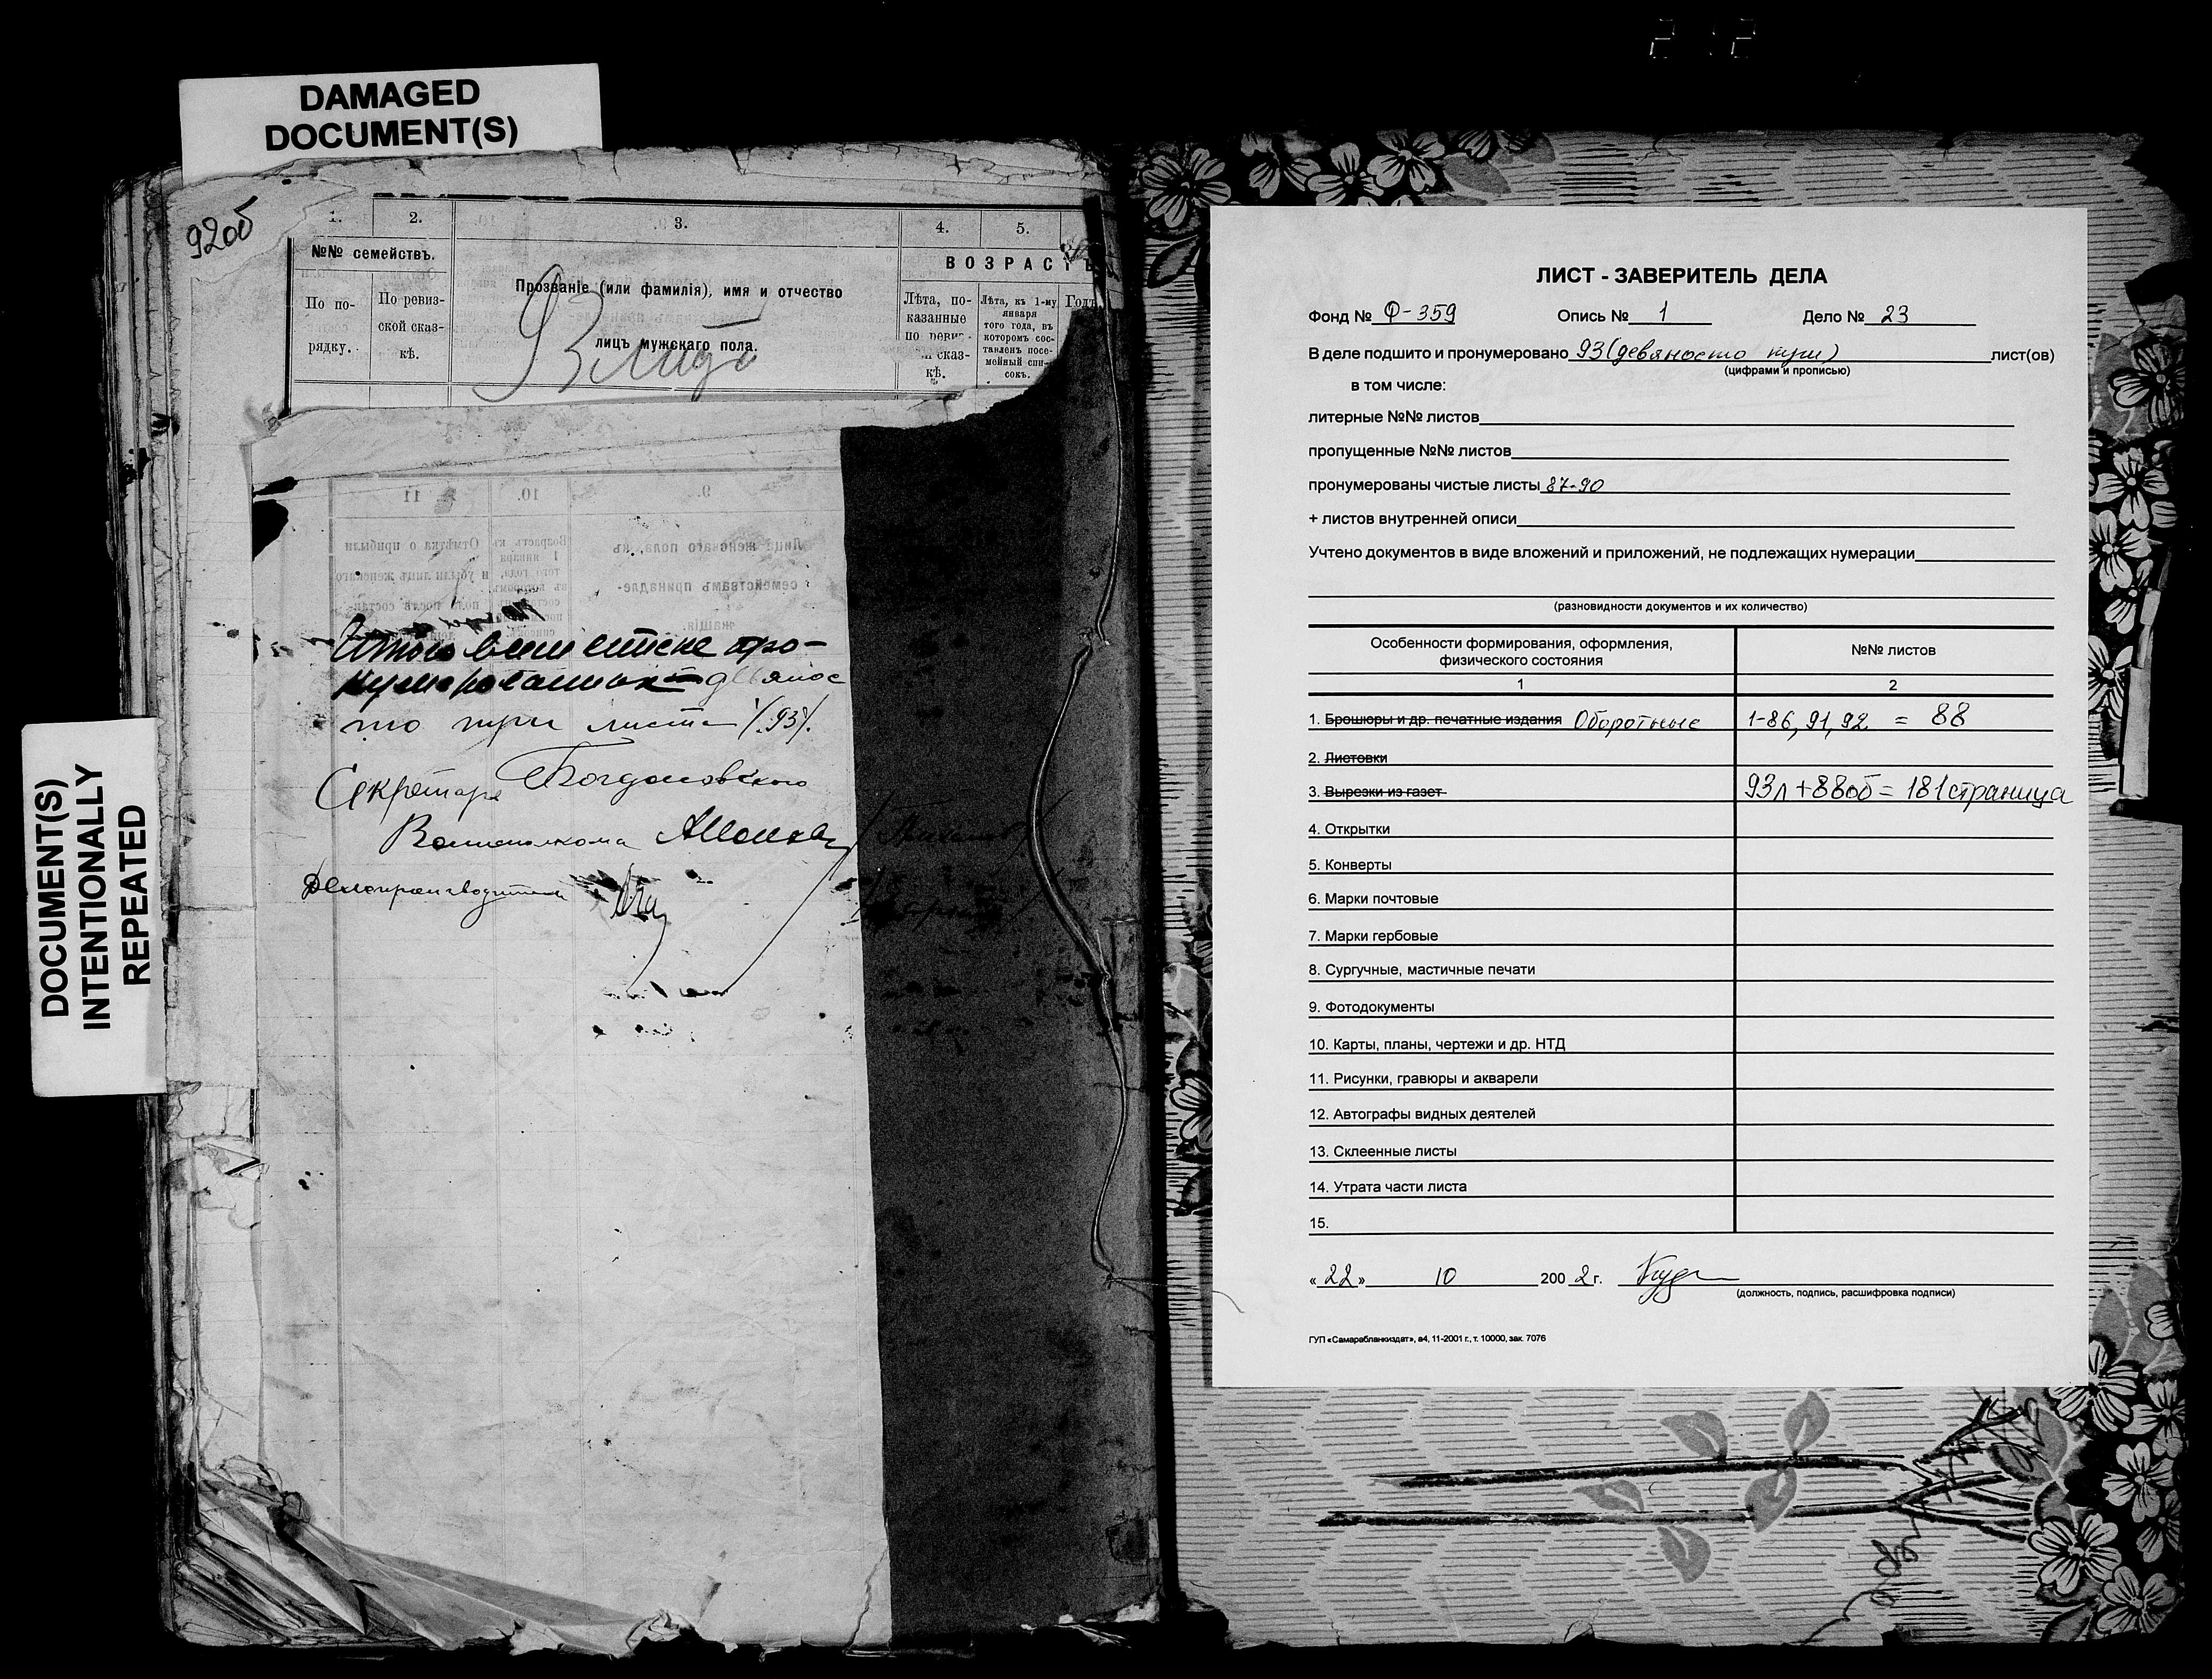 212
DAMAGED
DOCUMENT(S)
DOCUMENT(S)
INTENTIONALLY
REPEATED
92об
1.
2.
3.
4.
5.
№№ семействъ.
По по-
рядку.
По ревиз-
ской сказ-
кѣ.
Прозваніе (или фамилія), имя и отчество
лицъ мужскаго пола.
ВОЗРАСТЪ
Лѣта, по-
казанные
по ревиз-
сказ-
кѣ.
Лѣта, къ 1-му
января
того года, въ
которомъ сос-
тавленъ посе-
мейный спи-
сокъ.
Годъ
11
10.
9.
Отмѣтка о прибыли
и убыли лицъ женскаго
пола послѣ состав-
Возрастъ къ
1 января
того года,
въ которомъ
Лица женскаго пола, къ
семействамъ принадле-
жащія.
Итого в списке про-
нумерованных девянос
то три листа /93/.
Секретарь Богдановского
Волисполкома
Делопроизводитель
ЛИСТ - ЗАВЕРИТЕЛЬ ДЕЛА
Фонд № Ф-359 Опись № 1 Дело № 23
В деле подшито и пронумеровано 93 (девяносто три) лист(ов)
(цифрами и прописью)
в том числе:
литерные №№ листов
пропущенные №№ листов
пронумерованы чистые листы 87-90
+ листов внутренней описи
Учтено документов в виде вложений и приложений, не подлежащих нумерации
(разновидности документов и их количество)
Особенности формирования, оформления,
физического состояния
№№ листов
1
2
1. Брошюры и др. печатные издания Оборотные 1-86, 91, 92 = 88
2. Листовки
3. Вырезки из газет 93л + 88об = 181 страница
4. Открытки
5. Конверты
6. Марки почтовые
7. Марки гербовые
8. Сургучные, мастичные печати
9. Фотодокументы
10. Карты, планы, чертежи и др. НТД
11. Рисунки, гравюры и акварели
12. Автографы видных деятелей
13. Склеенные листы
14. Утрата части листа
15.
« 22 » 10 200 2 г.
(должность, подпись, расшифровка подписи)
ГУП «Самарабланкиздат», а4, 11-2001 г., т. 10000, зак. 7076